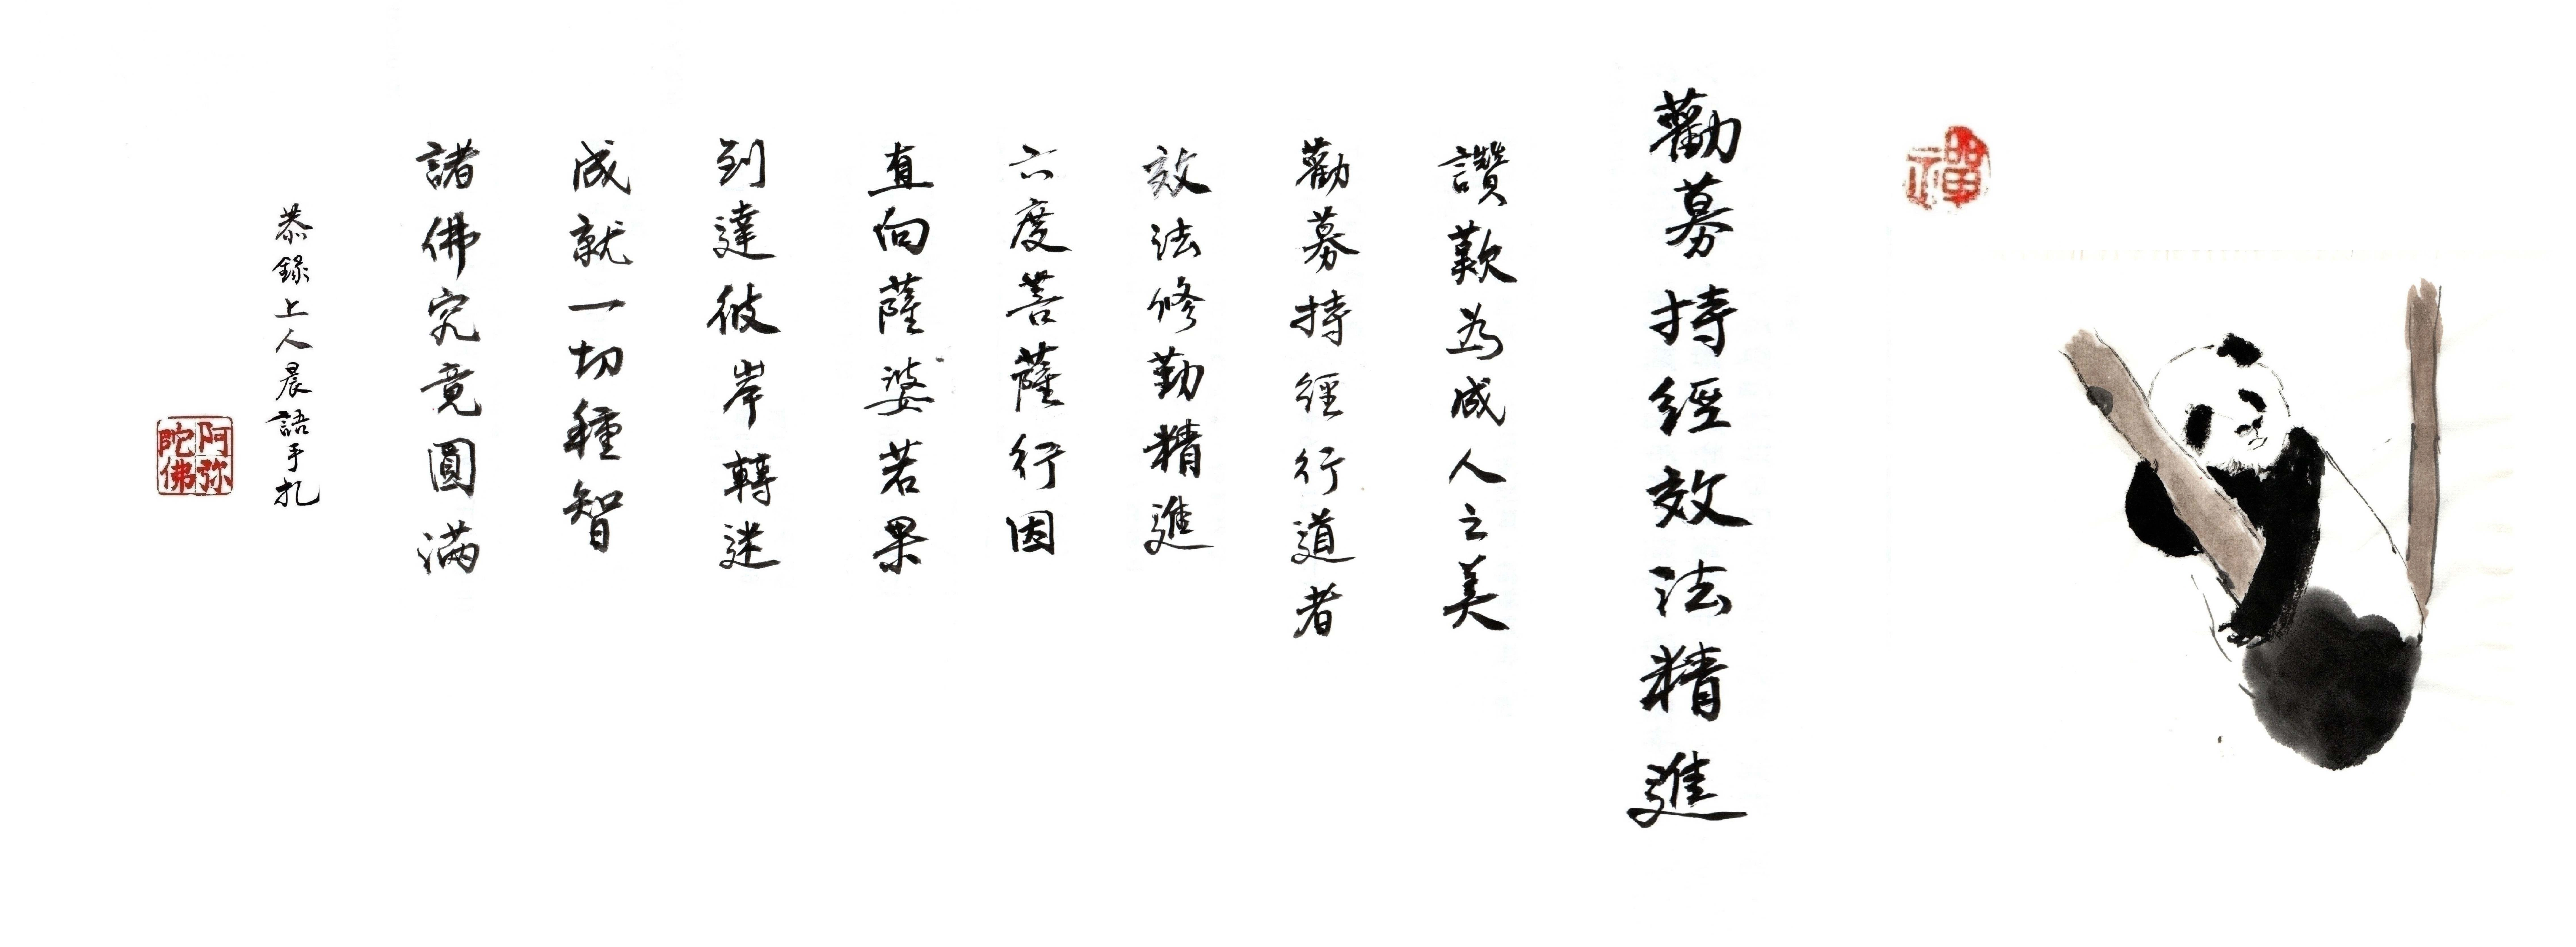 禪
勸募持經效法精進
讚歎為成人之美
勸募持經行道者
效法修勤精進
六度菩薩行因
直向薩婆若果
到達彼岸轉迷
成就一切種智
諸佛究竟圓滿
恭錄上人晨語手扎
阿弥陀佛